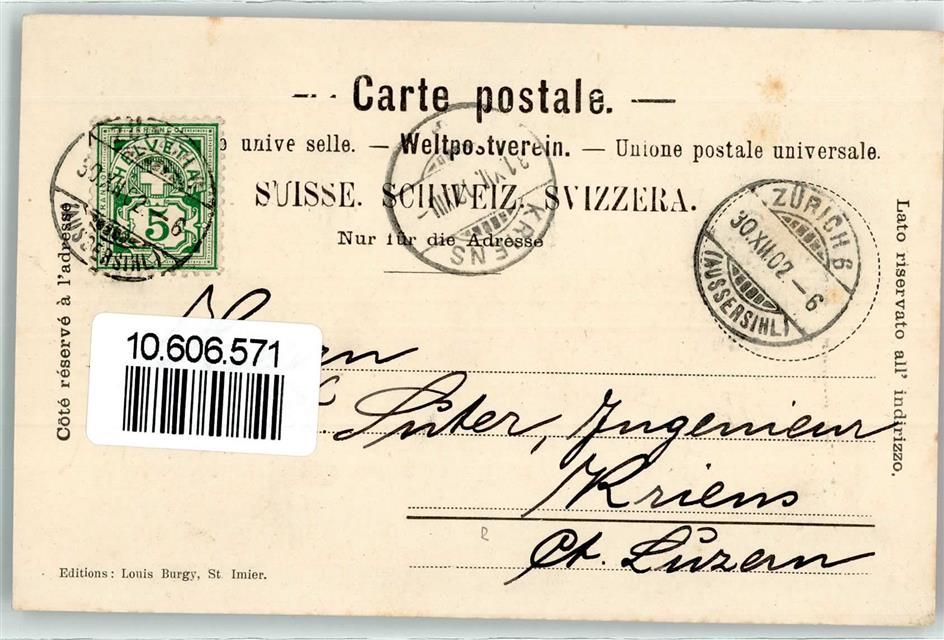 Carte postale.
unive selle. — Weltpostverein. — Unione postale universale.
SUISSE. SCHWEIZ. SVIZZERA.
Nur für die Adresse
Côté réservé à l'adresse
Lato riservato all' indirizzo.
HELVETIA
FRANCO
5
(AUSSERSIHL)
KRIENS
ZÜRICH 6
30.XII.02.–6
(AUSSERSIHL)
10.606.571
Suter, Ingenieur
Kriens
Ct. Luzern
Editions: Louis Burgy, St Imier.